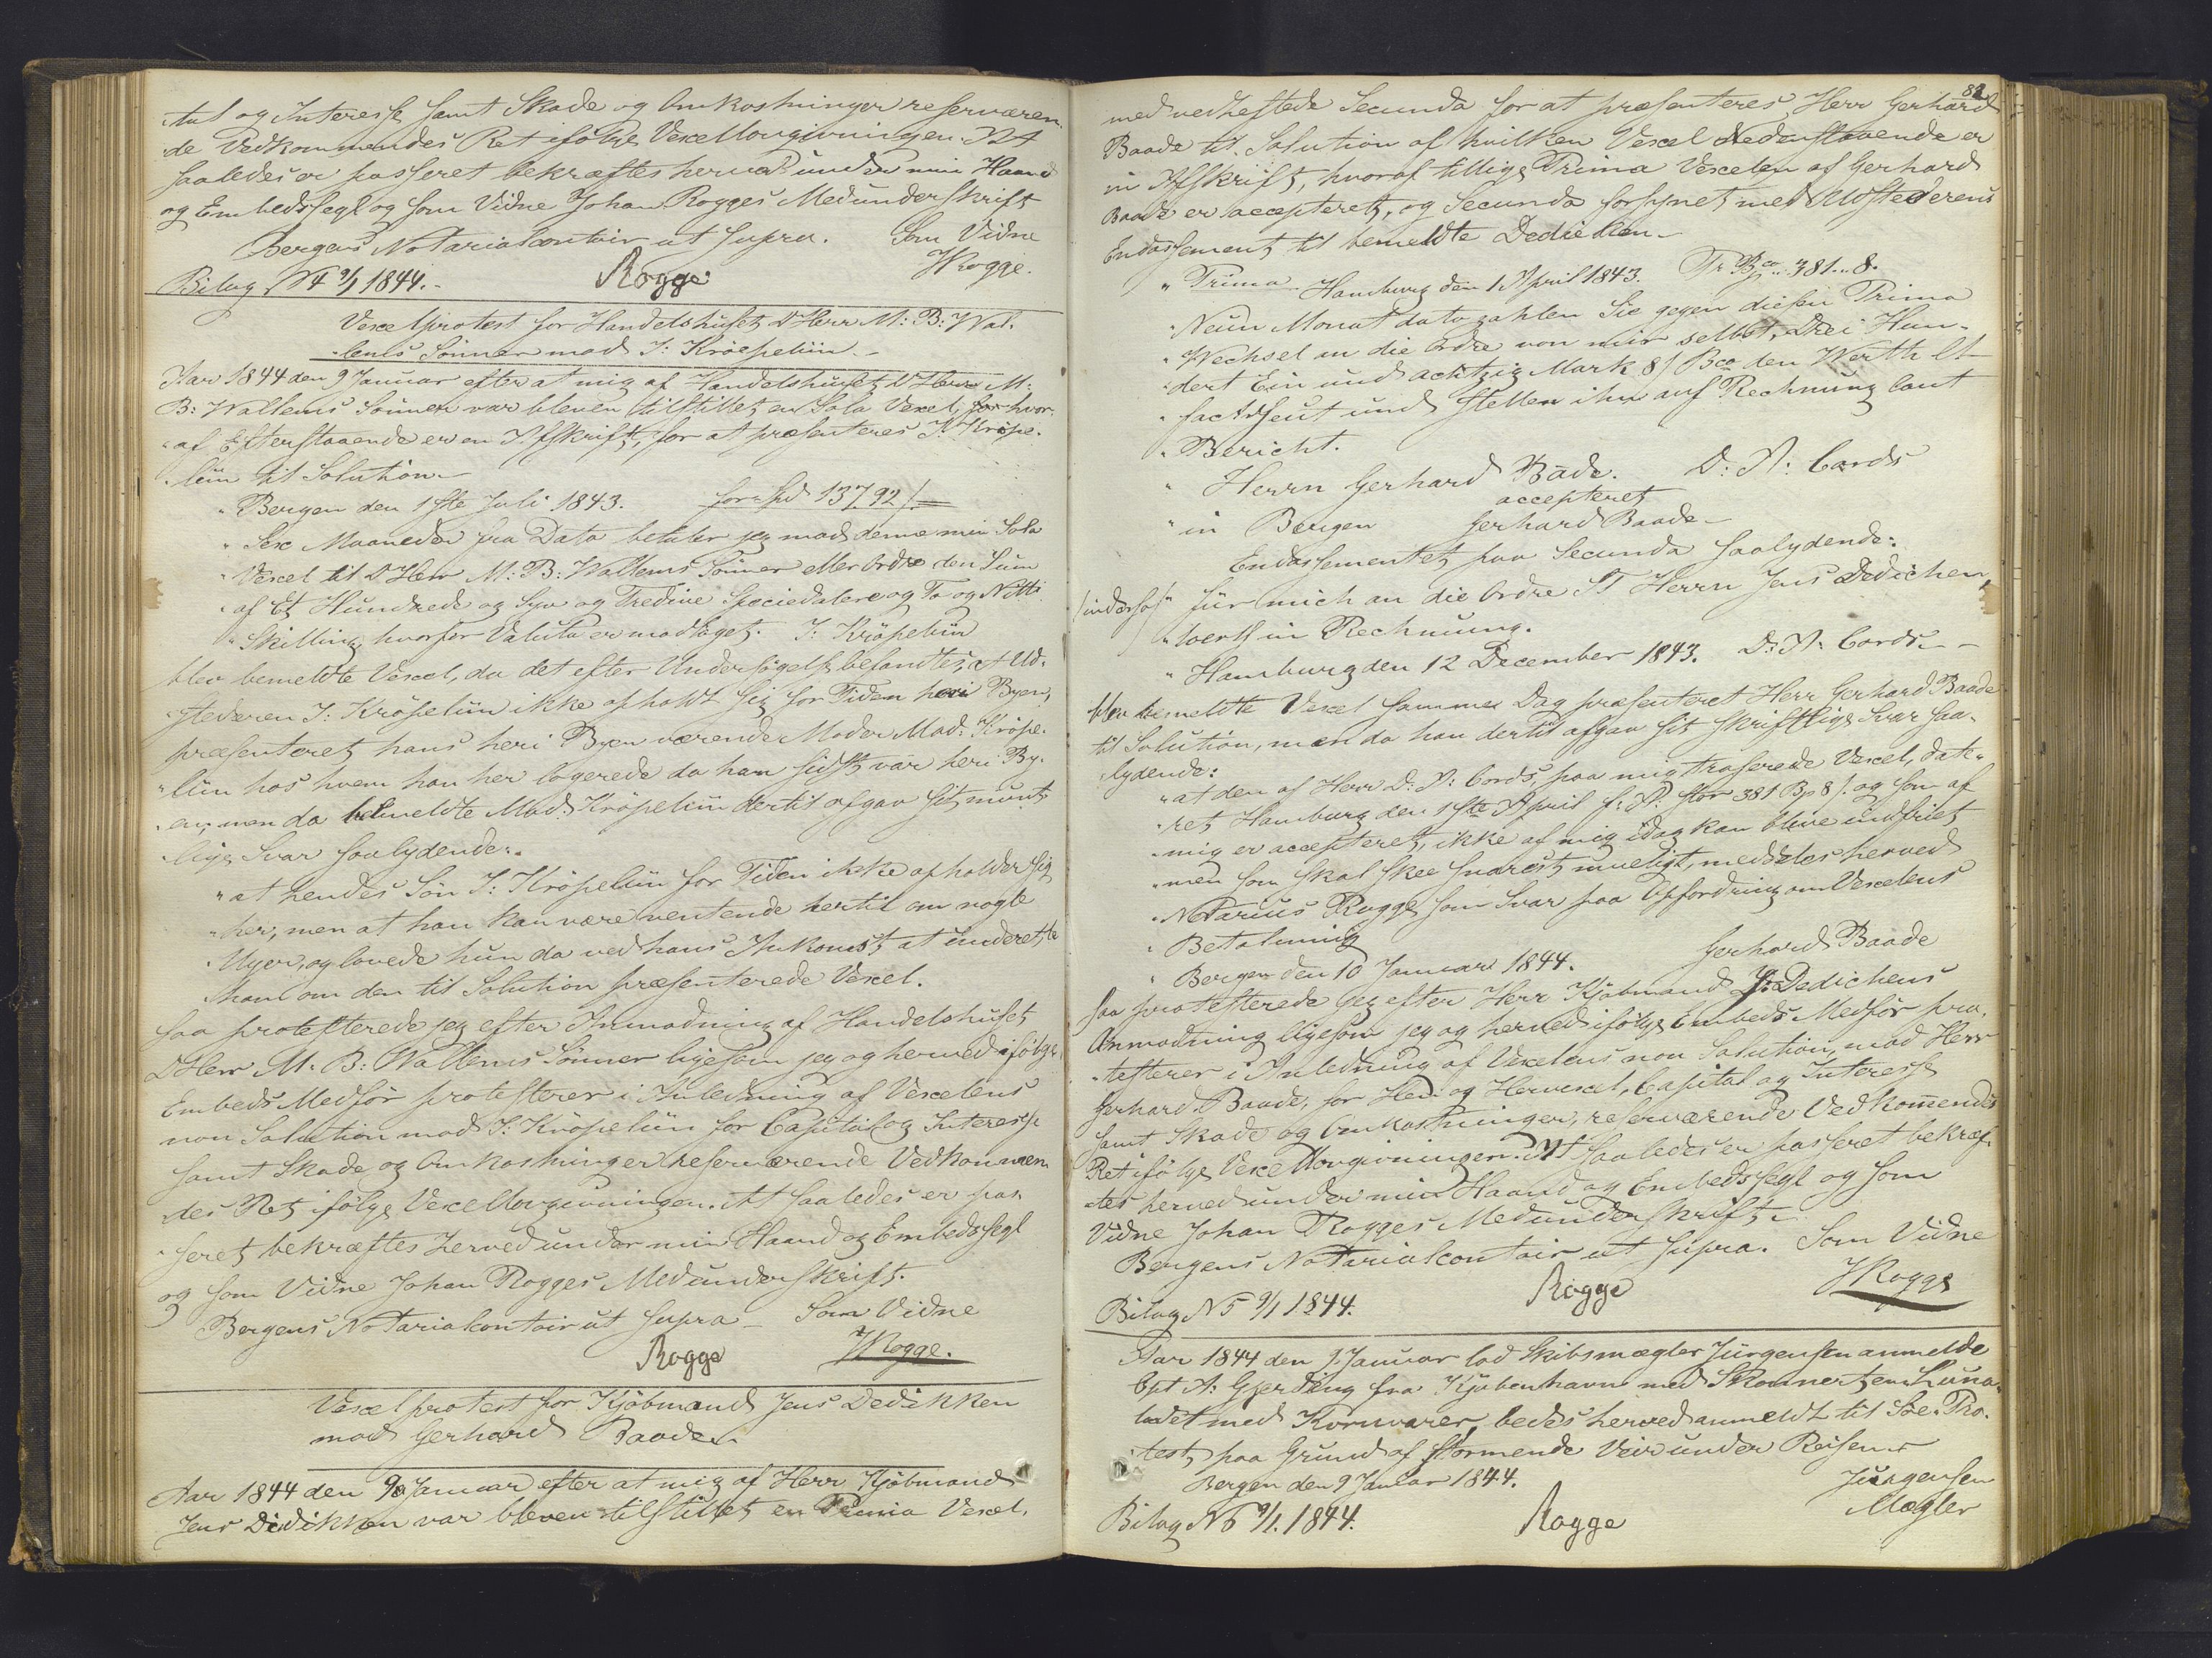 tal og Interesse samt Skade og Omkostninger reserveren-
de Vedkommendes Ret ifølge Vexellovgivningen. At
saaledes er passeret bekræftes herved under min Haand
og Embedssegl og som Vidne Johan Rogges Medunderskrift
Bergens Notarialcontoir ut supra. Som Vidne
Bilag N 4 9/1 1844. Rogge JRogge.
Vexelprotest for Handelshuset D'Herr M: B: Wal-
lems Sønner mod J: Kröepeliin
Aar 1844 den 9 Januar efter at mig af Handelshuset D'Herr M:
B: Wallems Sønner var bleven tilstillet en Sola Vexel, for hvor-
af Efterstaaende er en Afskrift, for at præsenteres J: Kröpe-
liin til Solution
"Bergen den 1ste Juli 1843. for Spd 137.92 /
"Sex Maaneder fra Dato betaler jeg mod denne min Sola
"Vexel til D'Herr M: B: Wallems Sønner eller Ordre den Sum
"af Et Hundrede og Syv og Tredive Speciedalere og To og Nitti
"Skilling, hvorfor Valuta er modtaget. J: Kröpeliin
blev bemeldte Vexel, da det efter Undersøgelse befandtes at Ud-
stederen J: Kröpeliin ikke opholdt sig for Tiden her i Byen,
præsenteret hans her i Byen værende Moder Mad: Kröpe-
liin hos hvem han her logerede da han sidst var her i By-
en, men da bemeldte Mad: Kröpeliin dertil afgav sit mundt-
lige Svar saalydende:
"at hendes Søn J: Kröpeliin for Tiden ikke opholder sig
"her, men at han kan være ventende hertil om nogle
"Uger, og lovede hun da ved hans Ankomst at underette
"ham om den til Solution præsenterede Vexel.
saa protesterede jeg efter Anmodning af Handelshuset
D'Herr M. B: Wallems Sønner ligesom jeg og herved ifølge
Embeds Medfør protesterer i Anledning af Vexelens
non Solution mod J: Kröpeliin for Capital og Interesse
samt Skade og Omkostninger reserverende Vedkommen-
des Ret ifølge Vexellovgivningen. At saaledes er pas-
seret bekræftes herved under min Haand og Embedssegl
og som Vidne Johan Rogges Medunderskrift.
Bergens Notarialcontoir ut supra Som Vidne
Rogge JRogge.
Vexelprotest for Kjøbmand Jens Dedikken
mod Gerhard Baade
Aar 1844 den 9 Januar efter at mig af Herr Kjøbmand
Jens Dedikken var bleven tilstillet en Prima Vexel,
82
med vedheftede Secunda for at præsenteres Herr Gerhard
Baade til Solution af hvilken Vexel Nedenstaaende er
in Afskrift, hvoraf tillige Prima Vexelen af Gerhard
Baade er accepteret, og Secunda forsynet med Udstederens
Endossement til bemeldte Dedichen
"Prima. Hamburg den 1 April 1843. Bco 381..8.
"Neun Monat dato zahlen Sie gegen diesen Prima
"Wechsel an die Ordre von mir selbst, Drei Hun-
"dert Ein und achtzig Mark 8 / Bco den Werth
" und stellen ihn auf Rechnung laut
"Bericht.
" Herrn Gerhard Bade. D: N: Cords
accepteret
"in Bergen Gerhard Baade
Endossementet paa Secunda saalydende:
" für mich an die Ordre Herrn Jens Dedichen
"werth in Rechnung.
"Hamburg den 12 December 1843. D: N: Cords
blev bemeldte Vexel samme Dag præsenteret Herr Gerhard Baade
til Solution, men da han dertil afgav sit skriftlige Svar saa-
lydende:
"at den af Herr D: N: Cords, paa mig trasserede Vexel, date-
"ret Hamburg den 1ste April f: A: stor 381 8 / og som af
"mig er accepteret, ikke af mig idag kan blive indfriet
"men som skal skee snarest mueligt, meddeles herved
"Notarius Rogge som Svar paa Opfordring om Vexelens
"Betalning
"Bergen den 10 Januar 1844. Gerhard Baade
saa protesterede jeg efter Herr Kjøbmand J: Dedichens
Anmodning ligesom jeg og herved ifølge Embeds Medfør pro-
testerer i Anledning af Vexelens non Solution, mod Herr
Gerhard Baade, for Hen og Hervexel, Capital og Interesse
samt Skade og Omkostninger, reserverende Vedkommendes
Ret ifølge Vexellovgivningen. At saaledes er passeret bekræf-
tes herved under min Haand og Embedssegl og som
Vidne Johan Rogges Medunderskrift
Bergens Notarialcontoir ut supra. Som Vidne
Bilag N 5 9/1 1844. Rogge JRogge
Aar 1844 den 9 Januar lod Skibsmægler Jürgensen anmelde
Cpt A: Gjerding fra Kjøbenhavn med Skonnerten Luna
ladet med Kornvarer, bedes herved anmeldt til Søe-Pro-
test paa Grund af stormende Veir under Reisen
Bergen den 9 Januar 1844. Jürgensen
Bilag N 6 9/1 1844. Rogge Mægler